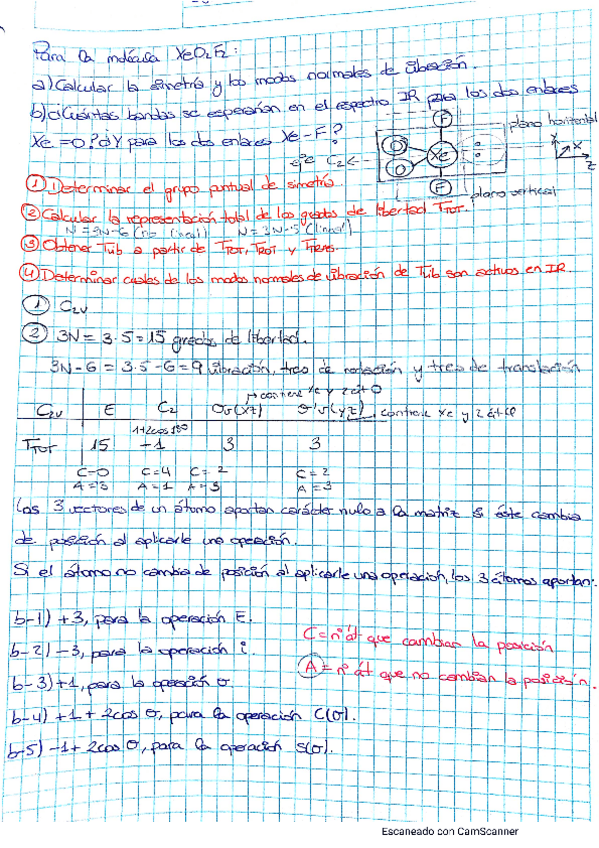 Para la molécula XeO2F2:
a) Calcular la simetría y los modos normales de vibración.
b) ¿Cuántas bandas se esperarían en el espectro IR para los dos enlaces
Xe=O? ¿Y para los dos enlaces Xe-F?
F
plano horizontal
O
O
Xe
Y
X
Z
eje C2
F
plano vertical
① Determinar el grupo puntual de simetría.
② Calcular la representación total de los grados de libertad Γtot.
N=3N-6 (no lineal) N=3N-5 (lineal)
③ Obtener Γvib a partir de Γtot, Γrot y Γtrans.
④ Determinar cuales de los modos normales de vibración de Γvib son activos en IR.
① C2v
② 3N = 3·5 = 15 grados de libertad.
3N-6 = 3·5-6 = 9 vibración, tres de rotación y tres de translación
contiene Xe y 2 át O
C2v E C2 σv(xz) σ'v(yz) contiene Xe y 2 át F
1+2cos180
Γtot 15 -1 3 3
C=0 C=4 C=2 C=2
A=1 A=3 A=3
Los 3 vectores de un átomo aportan carácter nulo a la matriz si éste cambia
de posición al aplicarle una operación.
Si el átomo no cambia de posición al aplicarle una operación, los 3 átomos aportan:
b-1) +3, para la operación E.
C = nº át que cambian la posición
b-2) -3, para la operación i.
A = nº át que no cambian la posición.
b-3) +1, para la operación σ
b-4) +1 + 2cos σ, para la operación C(σ).
b-5) -1 + 2cos σ, para la operación S(σ).
Escaneado con CamScanner